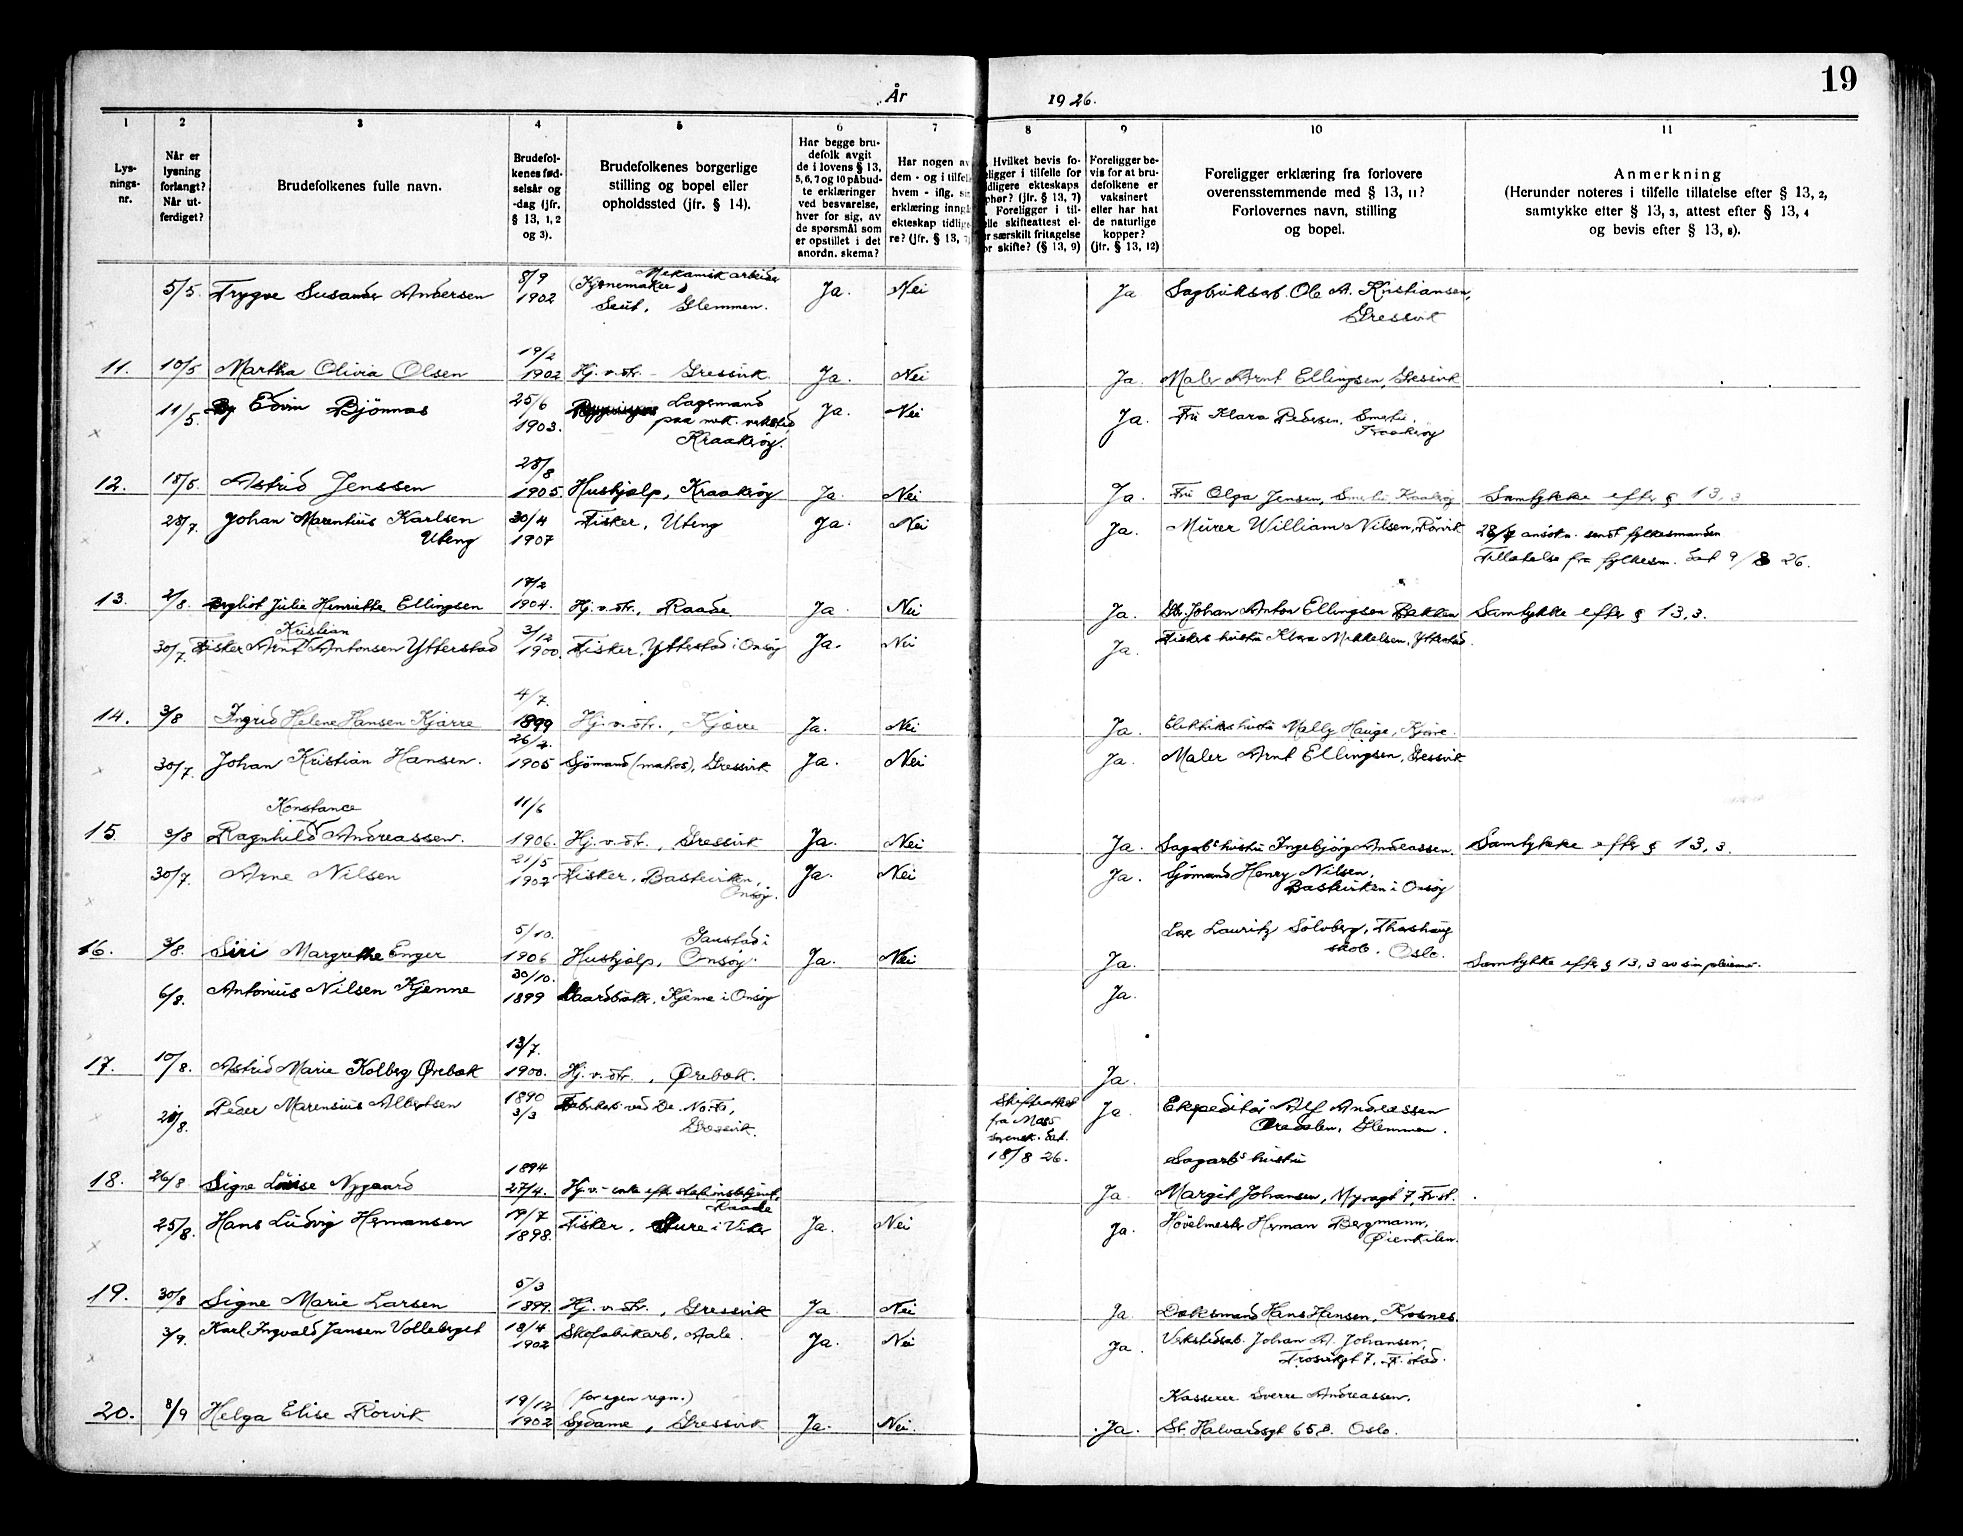 19
År 1926.
1 2 3 4 5 6 7 8 9 10 11
Lys-
nings-
nr.
Når er
lysning
forlangt?
Når ut-
ferdiget?
Brudefolkenes fulle navn.
Brudefol-
kenes fød-
selsår og
-dag (jfr.
§ 13, 1, 2
og 3).
Brudefolkenes borgerlige
stilling og bopel eller
opholdssted (jfr. § 14).
Har begge bru-
defolk avgit
de i lovens § 13,
5, 6, 7 og 10 påbud-
te erklæringer
ved besvarelse,
hver for sig, av
de spørsmål som
er opstillet i det
anordn. skema?
Har nogen av
dem - og i tilfelle
hvem - iflg.
erklæring inngått
ekteskap tidlige-
re? (jfr. § 13, 7)
Hvilket bevis fo-
religger i tilfelle for
tidligere ekteskaps
ophør? (jfr. § 13, 7)
Foreligger i til-
felle skifteattest el-
ler særskilt fritagelse
for skifte? (§ 13, 9)
Foreligger be-
vis for at bru-
defolkene er
vaksinert
eller har hat
de naturlige
kopper?
(jfr. § 13, 12)
Foreligger erklæring fra forlovere
overensstemmende med § 13, 11?
Forlovernes navn, stilling
og bopel.
Anmerkning
(Herunder noteres i tilfelle tillatelse efter § 13, 2,
samtykke efter § 13, 3, attest efter § 13, 4
og bevis efter § 13, 8).
5/5. Trygve Susander Andersen 8/9 1902 (Kjernemaker) Mekanisk arbeider
Seut, Glemmen. Ja. Nei Ja Sagbruksarb. Ole A. Kristiansen,
Gressvik
11. 10/5 Martha Olivia Olsen 19/2 1902 Hj. v. str. - Gressvik. Ja. Nei Ja. Maler Arnt Ellingsen, Gressvik
11/5. Edvin Bjönnas 25/6 1903. Lagsmand
paa mek. verksted
Kraakröy. Ja. Nei Ja. Fru Klara Pedersen, Smerte,
Kraakröy
12. 18/5. Astrid Jenssen 28/8 1905. Hushjælp, Kraakröy Ja. Nei Ja. Fru Olga Jensen, Smerte Kraakröy Samtykke efter § 13, 3
28/7 Johan Marentius Karlsen
Uteng 30/4 1907 Fisker, Uteng Ja. Nei Ja. Murer William Nilsen, Rörvik 28/7 ansökn. sendt fylkesmanden
Tillatelse fra fylkesm. dat 9/8 26.
13. 2/8. Bergliot Julie Henriette Ellingsen 17/2 1904. Hj. v. str., Raade. Ja. Nei Ja. Johan Anton Ellingsen Bakken Samtykke efter § 13, 3.
30/7. Fisker Arnt Kristian Antonsen Ytterstad 3/12 1900. Fisker, Ytterstad i Onsöy Ja. Nei Ja. Fiskers hustru Klara Mikkelsen, Ytterstad.
14. 3/8 Ingrid Helene Hansen Kjærre 4/7. 1899 Hj. v. str., Kjærre Ja. Nei Ja. Elektrikers hustru Mally Hauge, Kjærre.
30/7. Johan Kristian Hansen. 26/2. 1905 Sjömand (matros), Gressvik Ja. Nei Ja. Maler Arnt Ellingsen, Gressvik
15. 3/8 Ragnhild Konstance Andreassen. 11/6 1906. Hj. v. str., Gressvik Ja. Nei Ja. Sagarbs hustru Ingebjörg Andreassen. Samtykke efter § 13, 3.
30/7. Arne Nilsen 21/5 1902 Fisker, Bastvikken,
Onsöy. Ja. Nei Ja. Sjömand Henry Nilsen,
Bastvikken i Onsöy
16. 3/8. Siri Margrethe Enger 5/10. 1906 Hushjælp, Gaustad i
Onsöy. Ja. Nei Ja. Lauritz Sölvberg, Thorshaug
skole. Oslo. Samtykke efter § 13, 3 av sin pleiemor.
6/8. Antonius Nilsen Kjenne 30/10. 1899 Gaardbruker, Kjenne i Onsöy Ja.
17. 10/8. Astrid Marie Kolberg Ørebæk 13/7. 1900. Hj. v. str., Ørebæk. Ja.
20/8. Peder Marensius Albertsen 1890 3/3 Fabrikarb. ved De. No. Fa.,
Gressvik. Skifteattest
fra Moss
sorensk. dat.
18/8 26. Ja. Ekspeditör Alf Andreassen
Glemmen.
18. 26/8 Signe Louise Nygaard 1894 27/4. Hj. v. - enke efter stasjonsbetjent,
Raade Ja. Sagarbs hustru
Margit Johansen, Myragt 7, Fr.st.
25/8. Hans Ludvig Hermansen 19/7 1898. Fisker, Sture i Viker Ja. Nei Ja. Hövelmester Herman Bergmann,
Øienkilen.
19. 30/8 Signe Marie Larsen 5/3 1899. Hj. v. str., Gressvik Ja. Nei Ja Doksmand Hans Hansen, Krosnes.
3/9. Karl Ingvald Jansen Volleberget 18/4 1902 Skofabrikarb, Aale. Ja. Nei Ja. Verkstedsarb. Johan A. Johansen,
Trosvikgt 7, Fr. stad.
20. 8/9 Helga Elise Rörvik 19/12 1902 (for egen regn.)
Sydame, Gressvik Ja. Nei. Ja. Kasserer Sverre Andreassen.
St. Halvardsgt 65 B. Oslo.